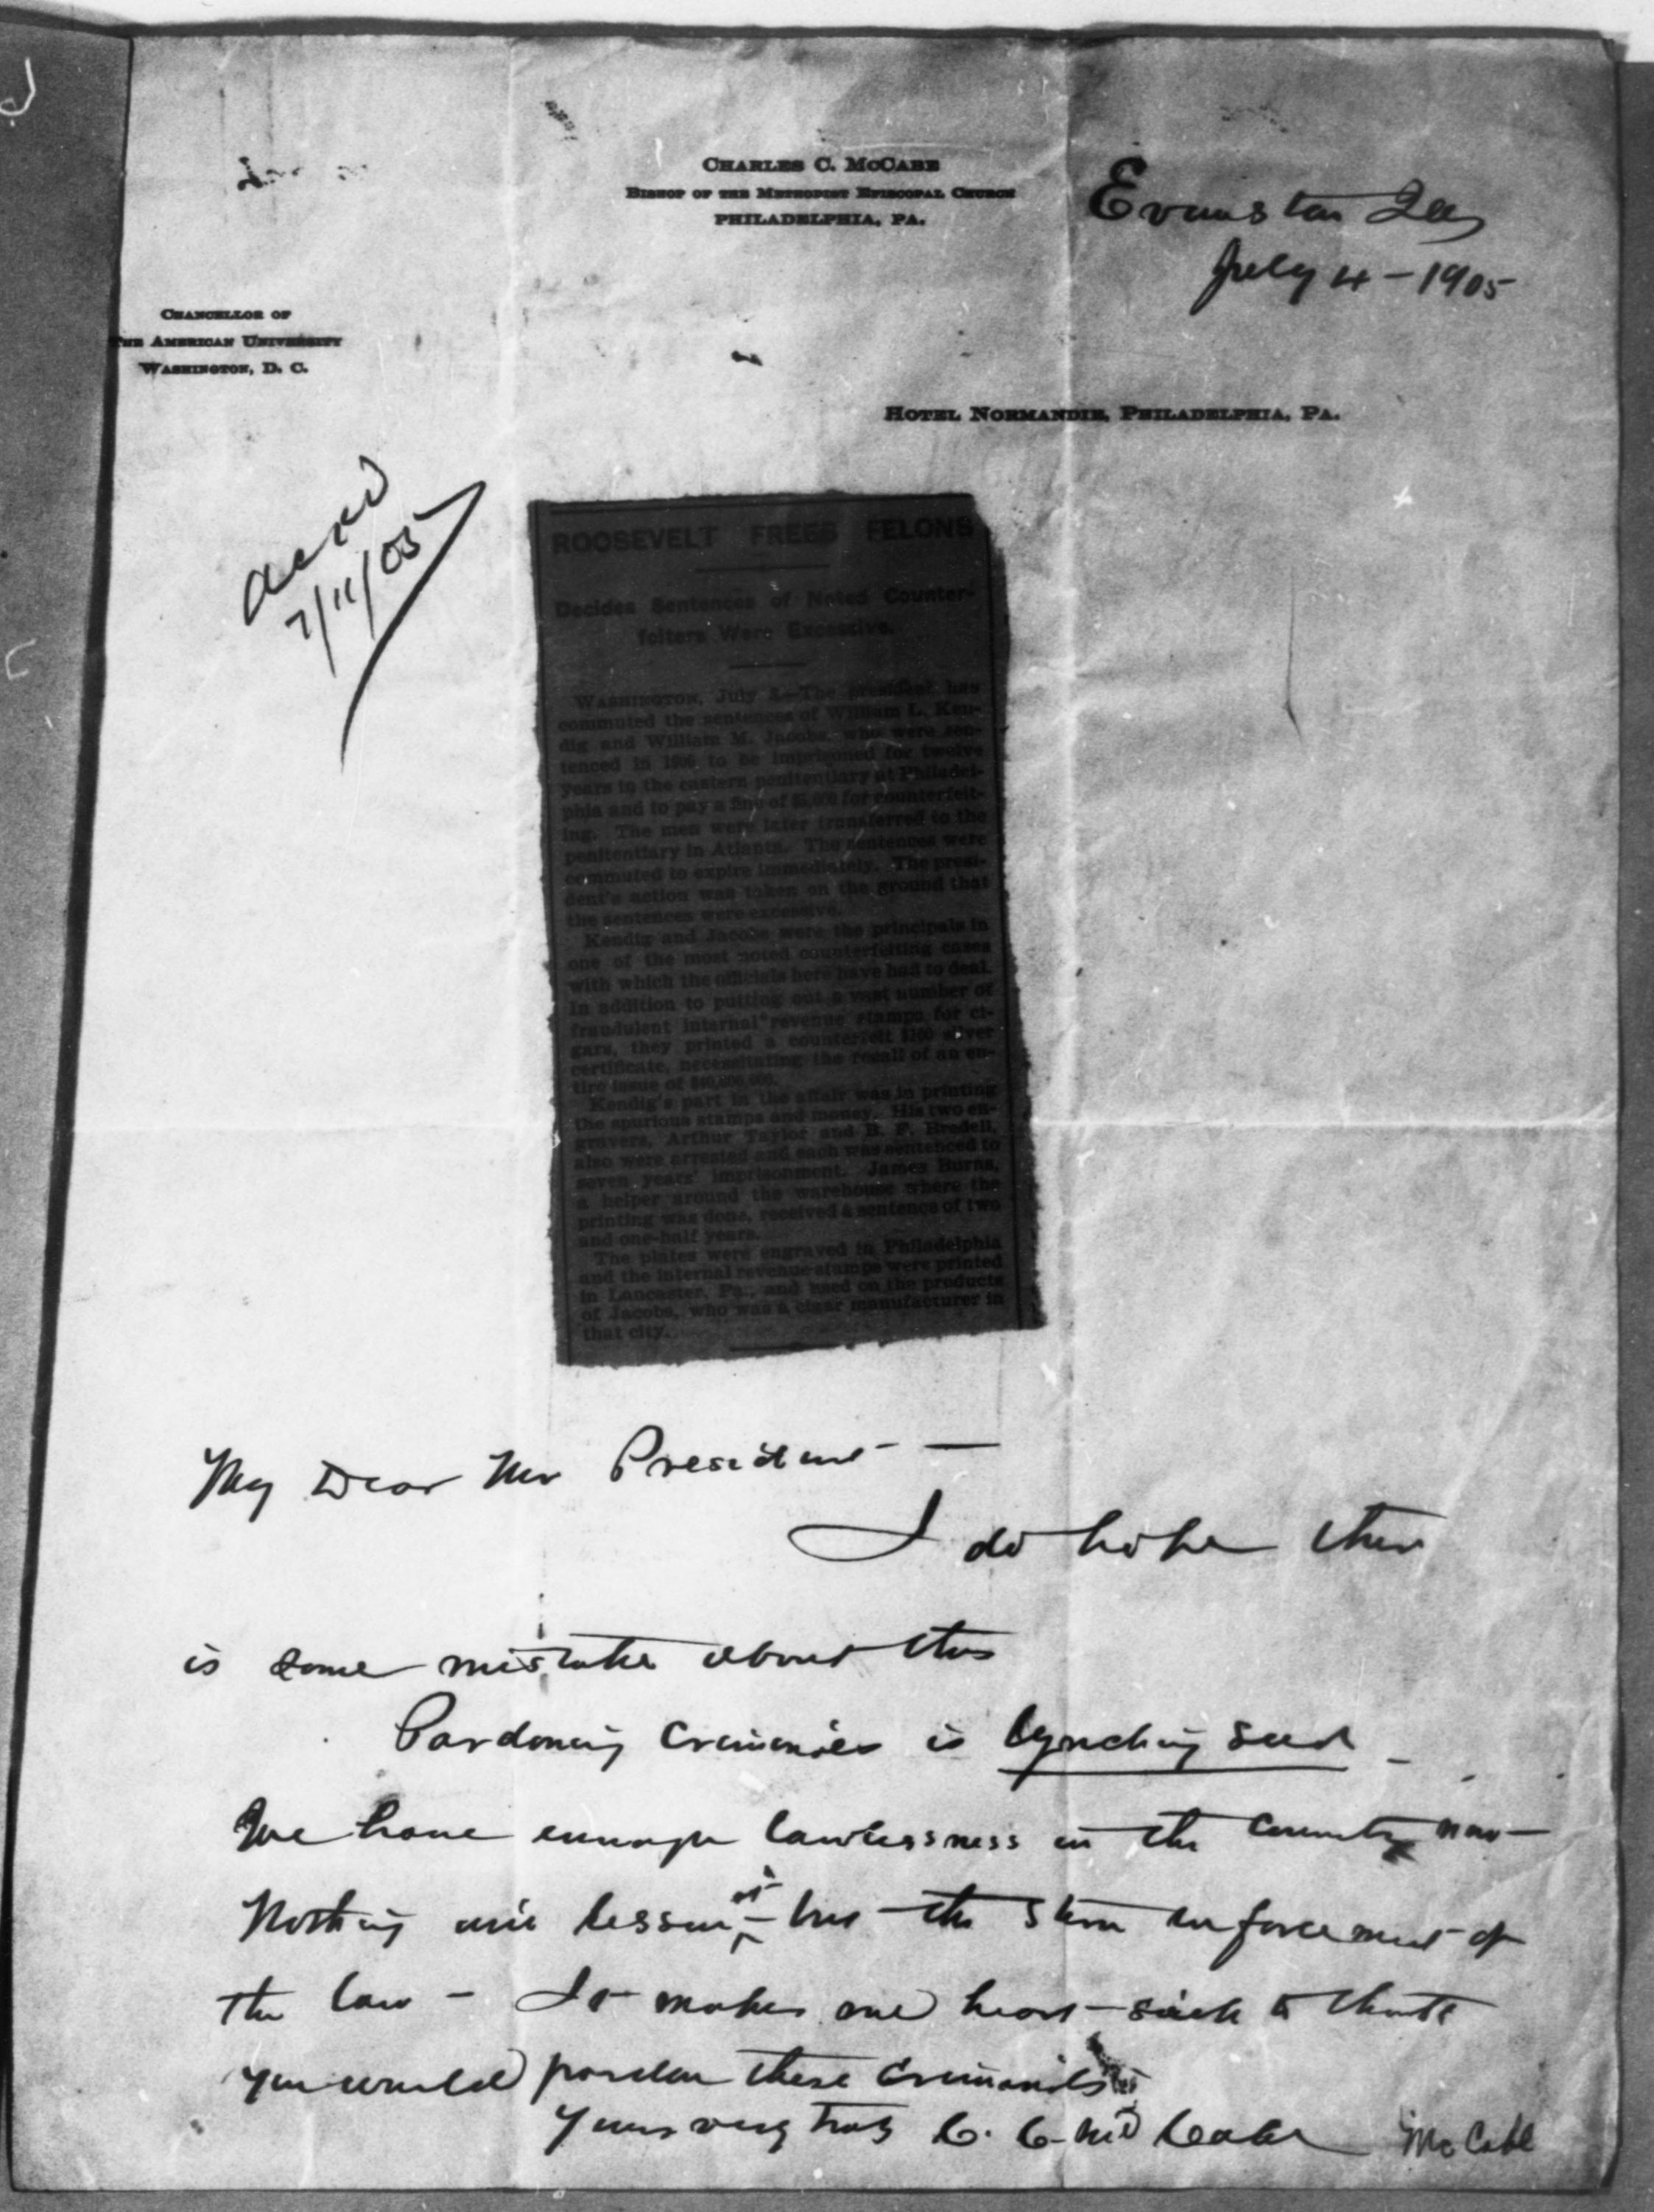 CHARLES C. MCCABE
BISHOP OF THE METHODIST EPISCOPAL CHURCH
PHILADELPHIA, PA.
Evanston Ills
July 4 - 1905
CHANCELLOR OF
THE AMERICAN UNIVERSITY
WASHINGTON, D. C.
HOTEL NORMANDIE, PHILADELPHIA, PA.
ackd
7/11/05
ROOSEVELT FREES FELONS
Decides Sentences of Noted Counter-
feiters Were Excessive.
WASHINGTON, July 3.—The president has
commuted the sentences of William L. Ken-
dig and William M. Jacobs, who were sen-
tenced in to be imprisoned for twelve
years in the eastern penitentiary at Philadel-
phia and to pay a fine of $5,000 for counterfeit-
ing. The men were later transferred to the
penitentiary in Atlanta. The sentences were
commuted to expire immediately. The presi-
dent's action was taken on the ground that
the sentences were excessive.
Kendig and Jacobs were the principals in
one of the most noted counterfeiting cases
with which the officials here have had to deal.
In addition to putting out a vast number of
fraudulent internal revenue stamps for ci-
gars, they printed a counterfeit $100 silver
certificate, necessitating the recall of an en-
tire issue of
Kendig's part in the affair was in printing
the spurious stamps and money. His two en-
gravers, Arthur Taylor and B. F. Bredell,
also were arrested and each was sentenced to
seven years' imprisonment. James Burns,
a helper around the warehouse where the
printing was done, received a sentence of two
and one-half years.
The plates were engraved in Philadelphia
and the internal revenue stamps were printed
in Lancaster, Pa., and used on the products
of Jacobs, who was a cigar manufacturer in
that city.
My Dear Mr President —
I do hope there
is some mistake about this
Pardoning Criminals is Lynching seed -
We have enough lawlessness in the Country now -
Nothing will lessen it but the stern enforcement of
the law - It makes one heart-sick to think
you would pardon these Criminals
Yours very truly C. C. McCabe McCabe